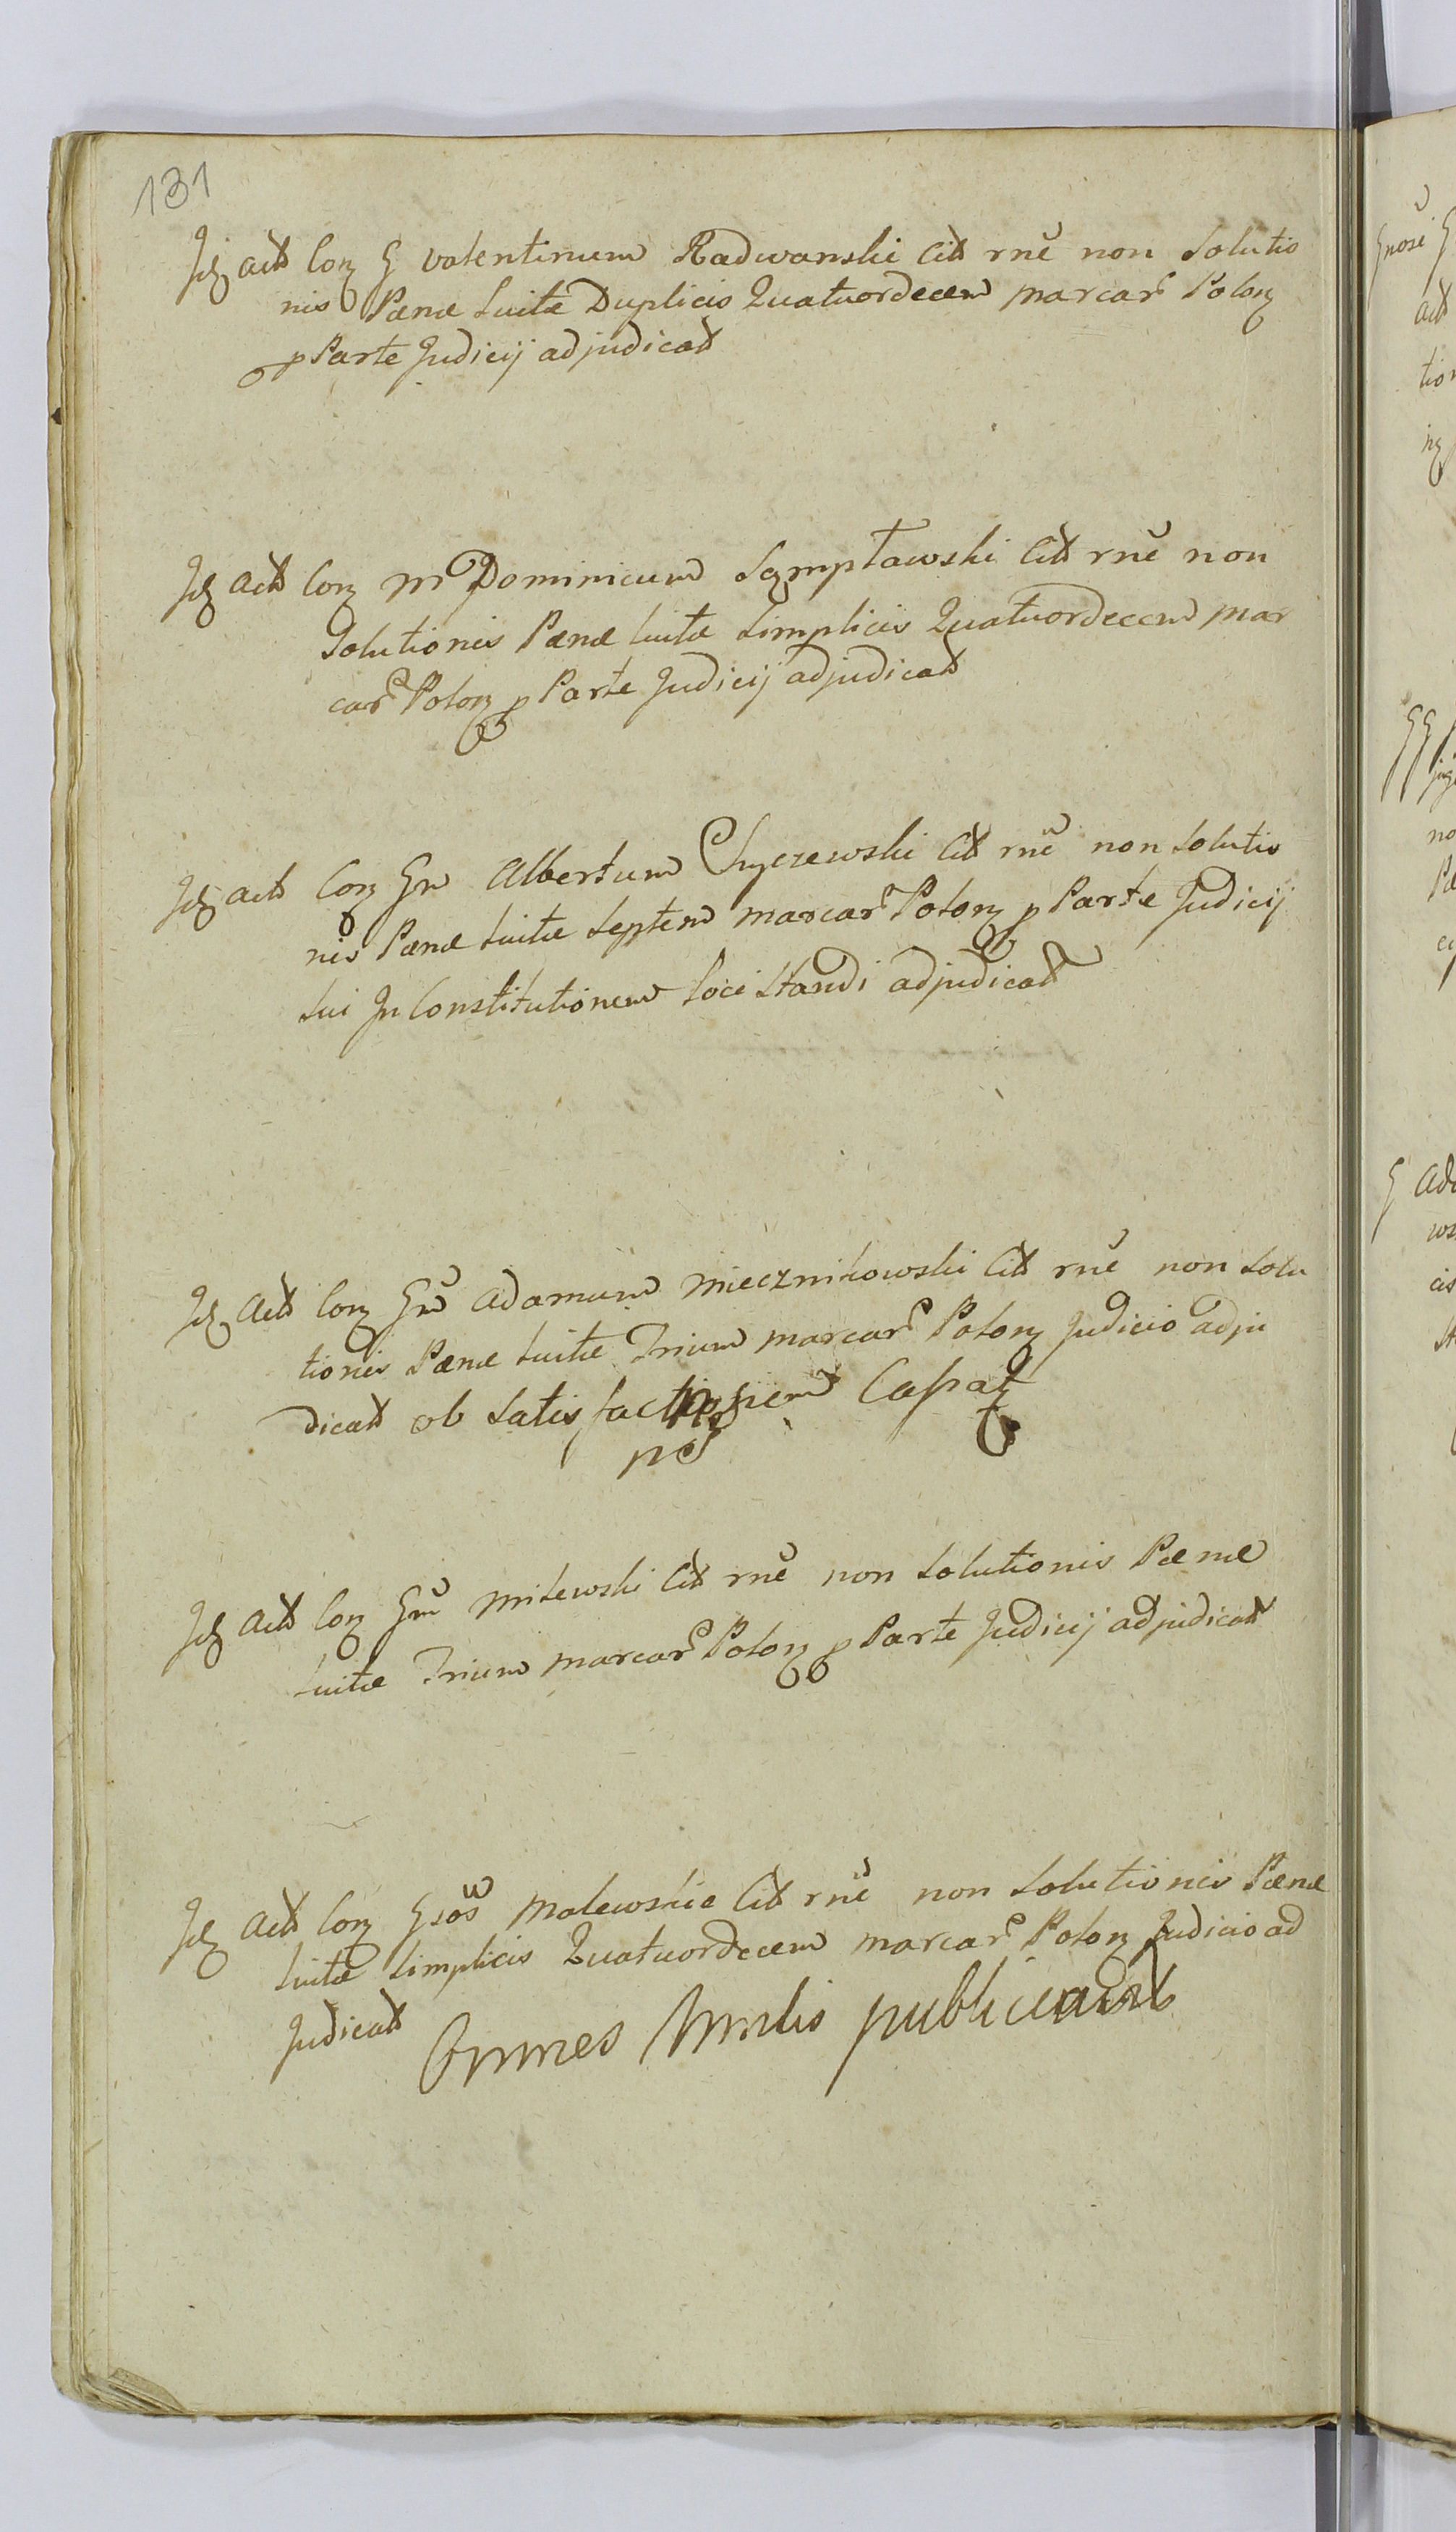 131
Jdz actt Conz G valentinum Radwanski citt rnē non solutio
nis Pænæ Luitæ Duplicis Quatuordecem marcar Polonz
p Parte Judicij adjudicatt
Jdz actt Conz M Dominicum Sęmpławski Citt rnē non
Solutionis Pænæ luitæ Simplicis Quatuordecem mar
car Polonz p Parte Judicij adjudicatt
Jdz actt Conz Gn Albertum Chyczewski Citt rnē non Solutio
nis Pænæ Luitæ Septem marcar Polonz p Parte Judicij
Sui In Constitutionem Loci Standi adjudicatt
Jdz actt Conz Gn Adamum Miecznikowski Citt rnē non Solu
tionis Pænæ Luitæ Trium marcar Polonz Judicio adju
dicatt ob Satis factionem Cassatz
Jdz actt Conz Gm Milewski Citt rnē non Solutionis Pænæ
Luitæ Trium marcar Polonz p Parte Judicij adjudicatt
Jdz actt Conz Gsōs Malewskie Citt rnē non Solutionis Pænæ
Luitæ Simplicis Quatuordecem marcar Polonz Judicio ad
Judicatt Omnes publicavit
G
actt